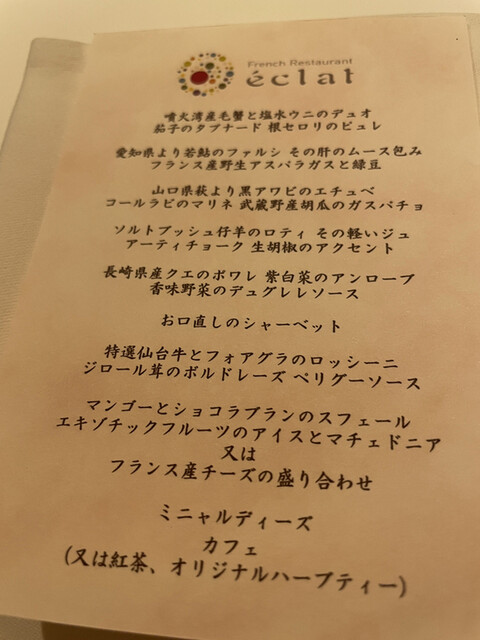 French Restaurant
éclat
噴火湾産毛蟹と塩水ウニのデュオ
茄子のタプナード 根セロリのピュレ
愛知県より若鮎のファルシ その肝のムース包み
フランス産野生アスパラガスと緑豆
山口県萩より黒アワビのエチュベ
コールラビのマリネ 武蔵野産胡瓜のガスパチョ
ソルトブッシュ仔羊のロティ その軽いジュ
アーティチョーク 生胡椒のアクセント
長崎県産クエのポワレ 紫白菜のアンロープ
香味野菜のデュグレレソース
お口直しのシャーベット
特選仙台牛とフォアグラのロッシーニ
ジロール茸のボルドレーズ ペリグーソース
マンゴーとショコラブランのスフェール
エキゾチックフルーツのアイスとマチェドニア
又は
フランス産チーズの盛り合わせ
ミニャルディーズ
カフェ
(又は紅茶、オリジナルハーブティー)